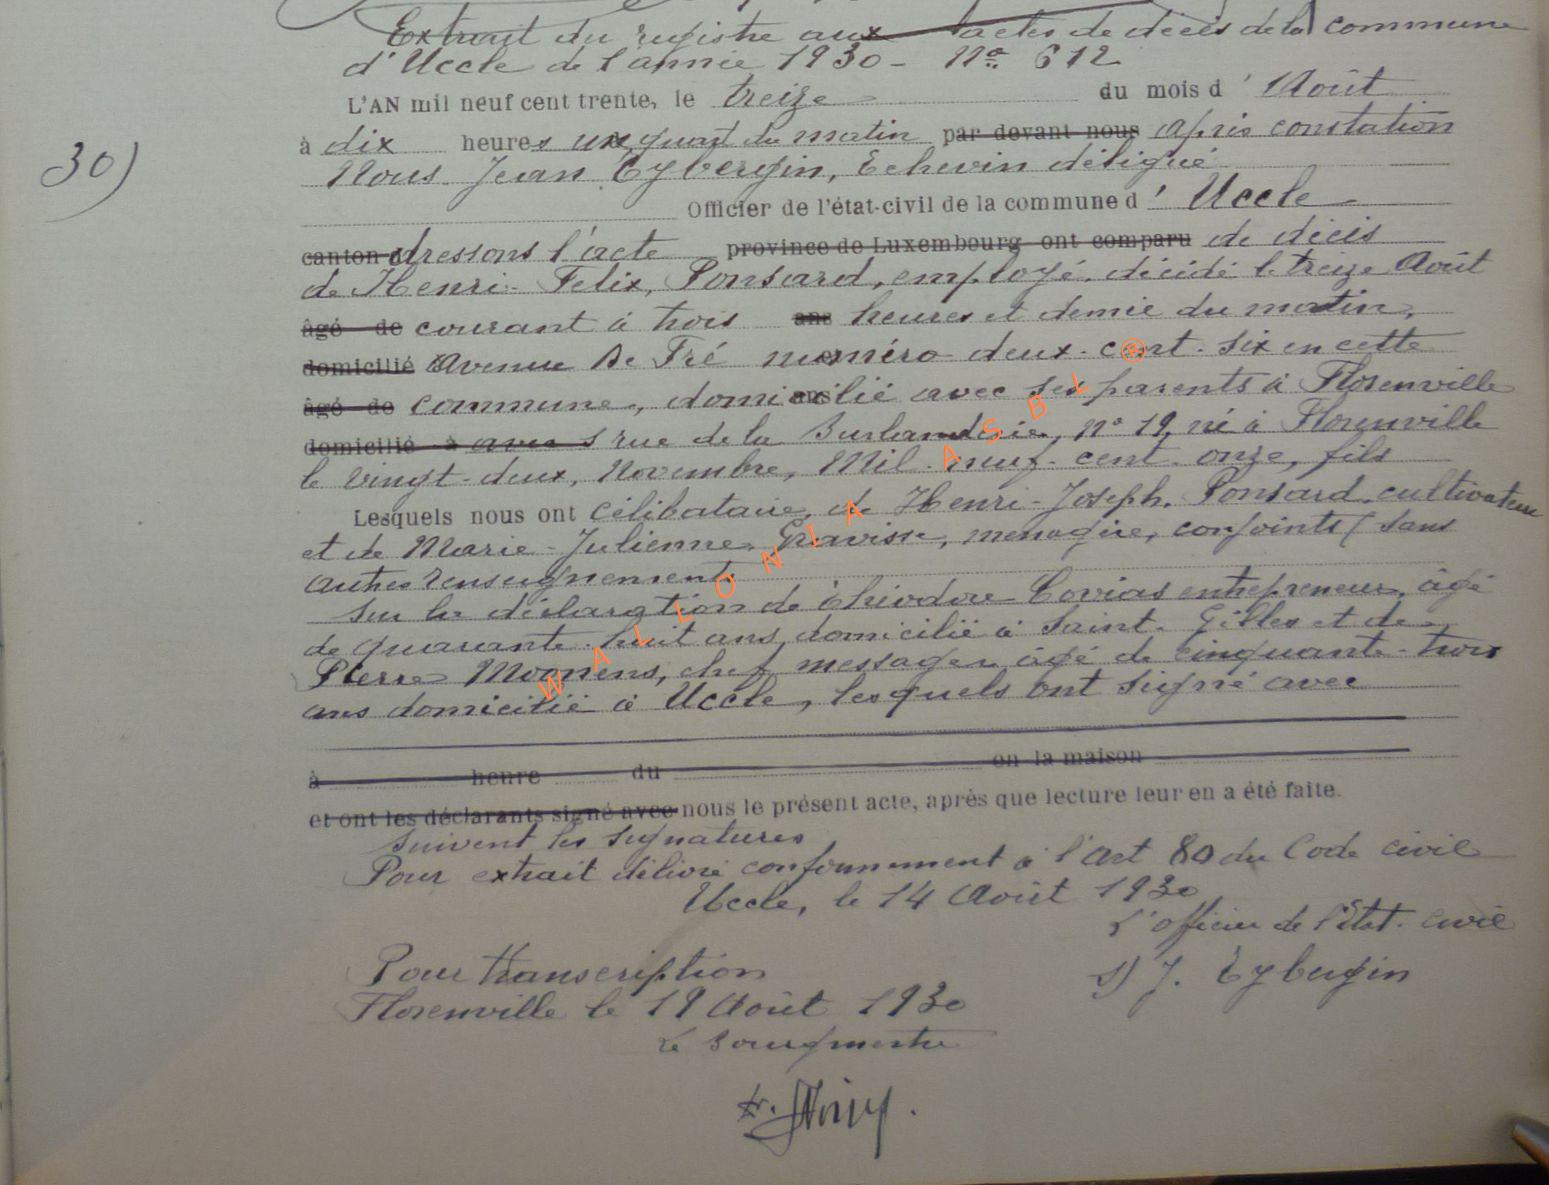 Extrait du registre aux actes de décès de la commune
d'Uccle de l'année 1930 - No 612
L'AN mil neuf cent trente, le treize du mois d' Août
30)
à dix heures un quart du matin par devant nous après constation
Nous Jean Eybergin, Echevin délégué
Officier de l'état-civil de la commune d' Uccle
canton d dressons l'acte province de Luxembourg ont comparu de décès
de Henri-Felix, Ponsard, employé, décédé le treize Août
âgé de courant à trois ans heures et demie du matin,
domicilié Avenue De Fré numéro deux-cent-six en cette
âgé de commune, domicilié avec ses parents à Florenville
domicilié à avec s rue de la n° 19, né à Florenville
le vingt-deux, Novembre, Mil-neuf-cent-onze, fils
Lesquels nous ont célibataire, de Henri-Joseph, Ponsard cultivateur
et de Marie-Julienne, Gravisse, menagère, conjoints (sans
autres renseignement
sur la déclaration de Théodore entrepreneur, âgé
de quarante-huit ans, domicilié à Saint-Gilles et de
Pierre Moonens, chef messager âgé de cinquante-trois
ans domicilié à Uccle, lesquels ont signé avec
à heure du en la maison
et ont les déclarants signé avec nous le présent acte, après que lecture leur en a été faite.
suivent les signatures
Pour extrait délivré conformément à l'art 80 du Code civil
Uccle, le 14 Août 1930
L'officier de l'Etat-civil
Pour transcription s) J. Eybergin
Florenville le 19 Août 1930
Le Bourgmestre
WALLONIA ASBL ®